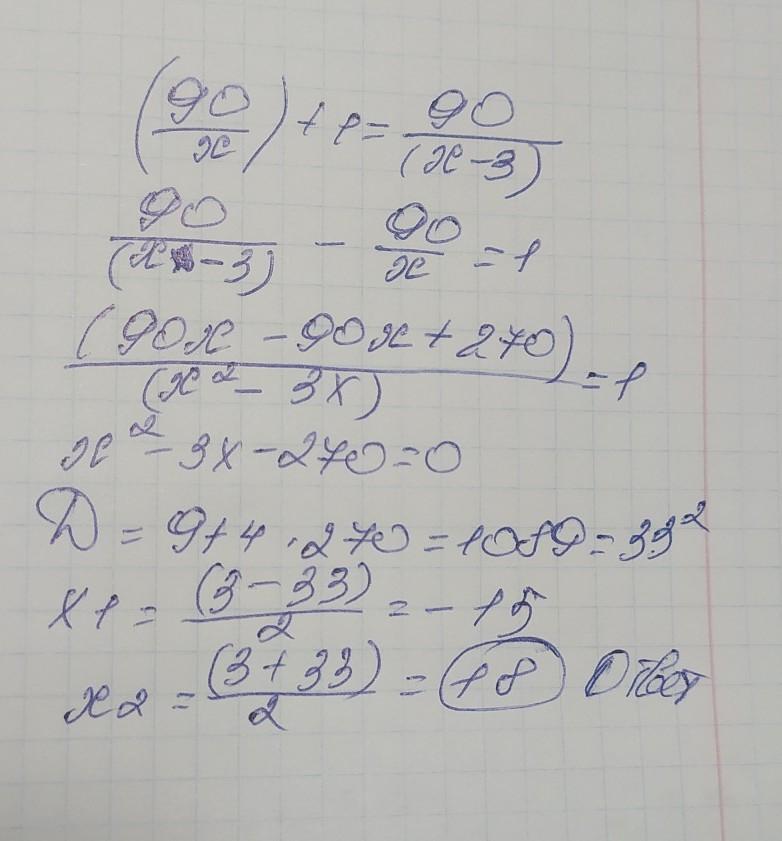 (90/x) + 1 = 90/(x-3)
90/(x-3) - 90/x = 1
(90x - 90x + 270)/(x² - 3x) = 1
x² - 3x - 270 = 0
D = 9 + 4 · 270 = 1089 = 33²
x1 = (3 - 33)/2 = -15
x2 = (3 + 33)/2 = 18 Ответ